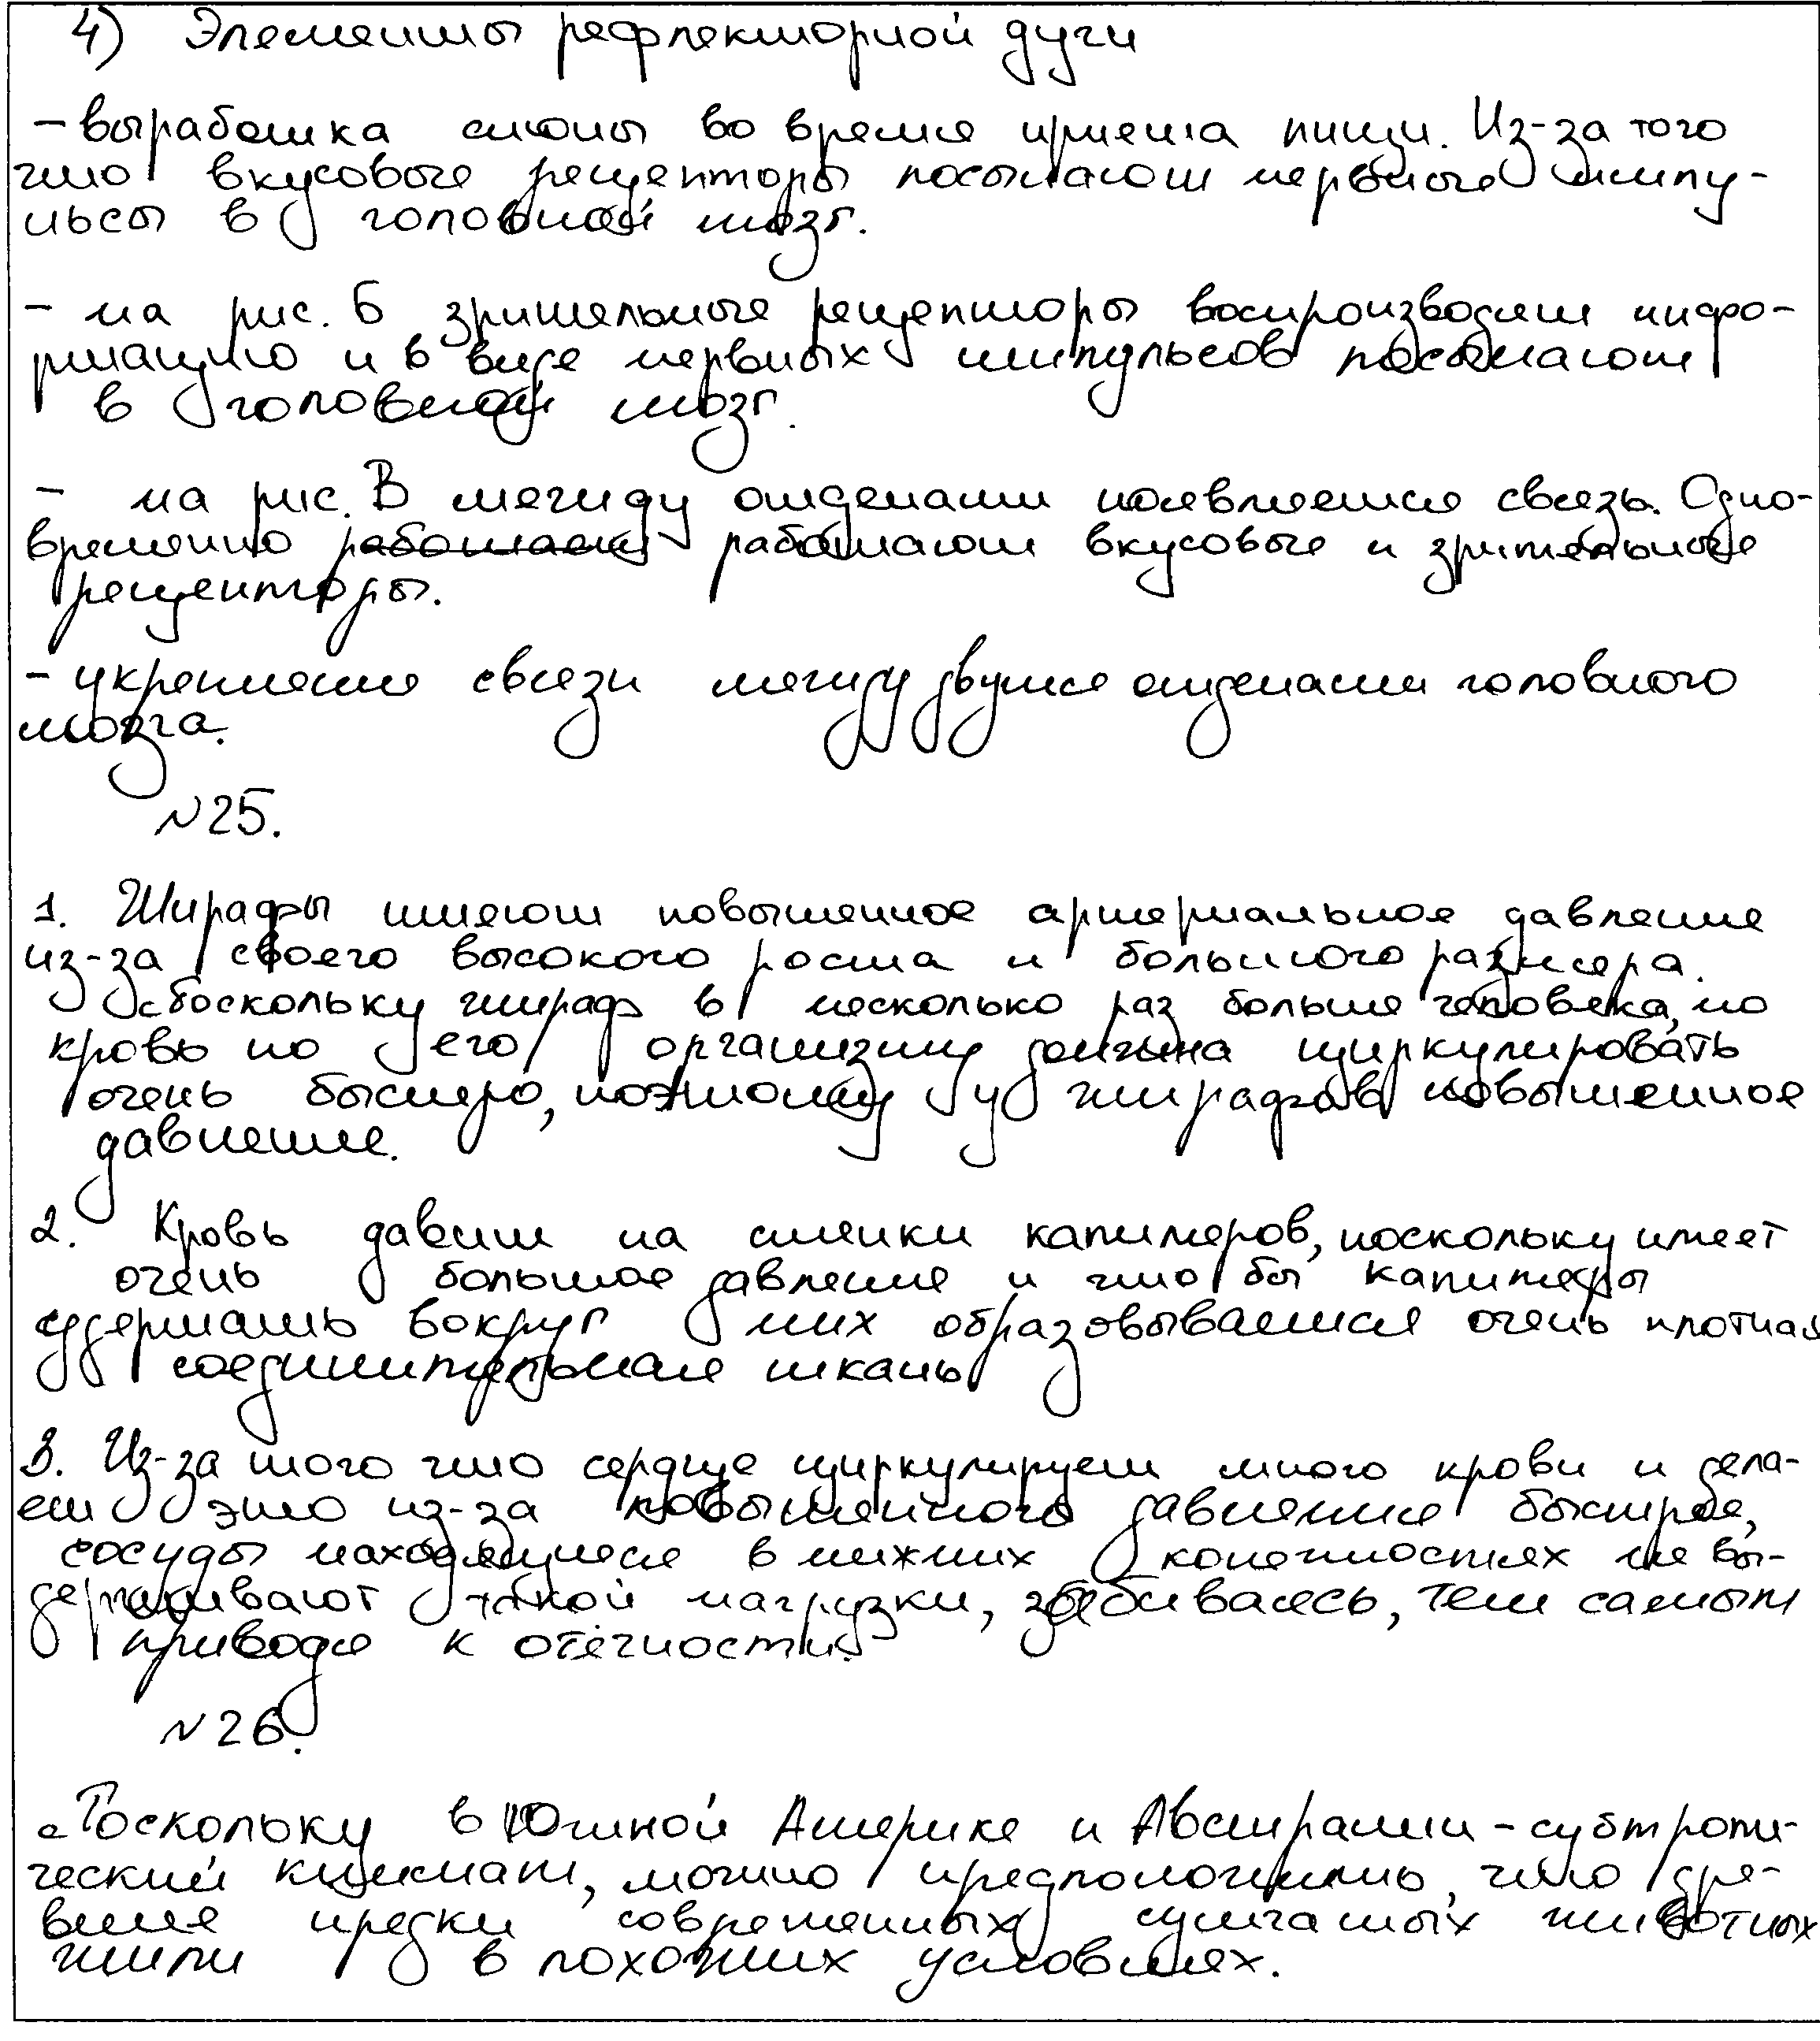 4) Элементы рефлекторной дуги
- выработка слюны во время приема пищи. Из-за того
что вкусовые рецепторы посылают нервные импу-
льсы в головной мозг.
- на рис. Б зрительные рецепторы воспроизводят инфо-
рмацию и в виде нервных импульсов посылают
в головной мозг.
- на рис. В между отделами появляется связь. Одно-
временно работает работают вкусовые и зрительные
рецепторы.
- укрепление связи между двумя отделами головного
мозга.
№25.
1. Жирафы имеют повышенное артериальное давление
из-за своего высокого роста и большого размера.
Поскольку жираф в несколько раз больше человека, то
кровь по его организму должна циркулировать
очень быстро, поэтому у жирафов повышенное
давление.
2. Кровь давит на стенки капиляров, поскольку имеет
очень большое давление и что бы капиляры
удержать вокруг них образовывается очень плотная
соединительная ткань
3. Из-за того что сердце циркулирует много крови и дела-
ет это из-за повышенного давления быстрее,
сосуды находящиеся в нижних конечностях не вы-
держивают такой нагрузки, забиваясь, тем самым
приводя к отёчности.
№26.
Поскольку в Южной Америке и Австралии - субтропи-
ческий климат, можно предположить, что дре-
вние предки современных сумчатых животных
жили в похожих условиях.